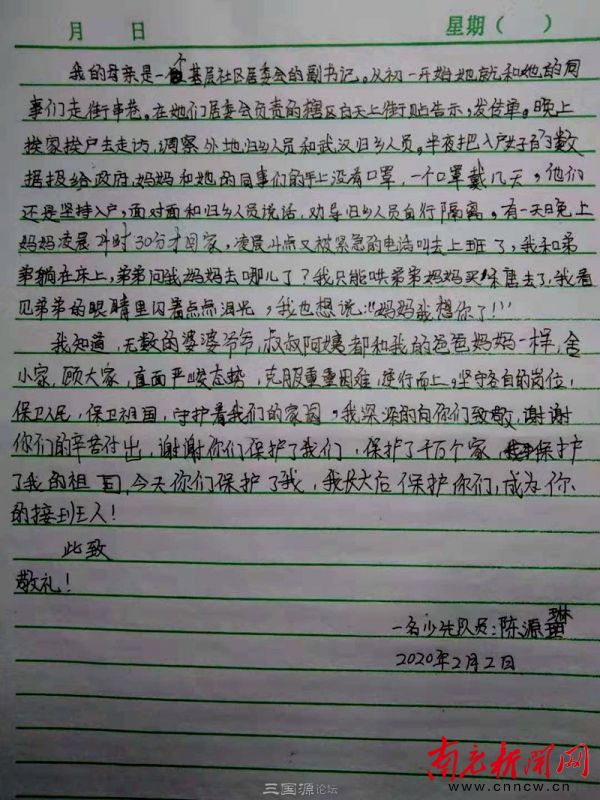 月 日 星期( )
我的母亲是一个基层社区居委会的副书记。从初一开始她就和她的同
事们走街串巷。在她们居委会负责的辖区白天上街贴告示，发传单。晚上
挨家挨户去走访，调察外地归乡人员和武汉归乡人员。半夜把入户好的数
据报给政府，妈妈和她的同事们的手上没有口罩，一个口罩戴几天，他们
还是坚持入户，面对面和归乡人员说话，劝导归乡人员自行隔离。有一天晚上
妈妈凌晨 时30分才回家，凌晨 点又被紧急的电话叫去上班了，我和弟
弟躺在床上，弟弟问我妈妈去哪儿了？我只能哄弟弟妈妈买 去了，我看
见弟弟的眼睛里闪着点点泪光，我也想说："妈妈我想你了!!!
我知道，无数的婆婆爷爷，叔叔阿姨都和我的爸爸妈妈一样，舍
小家，顾大家，直面严峻态势，克服重重困难，逆行而上，坚守各自的岗位，
保卫人民，保卫祖国，守护着我们的家园，我深深的向你们致敬，谢谢
你们的辛苦付出，谢谢你们保护了我们，保护了千万个家，保护
了我的祖国，今天你们保护了我，我长大后保护你们，成为你
的接班人！
此致
敬礼！
一名少先队员：陈源
2020年2月2日
南充新闻网
www.cnncw.cn
三国源论坛